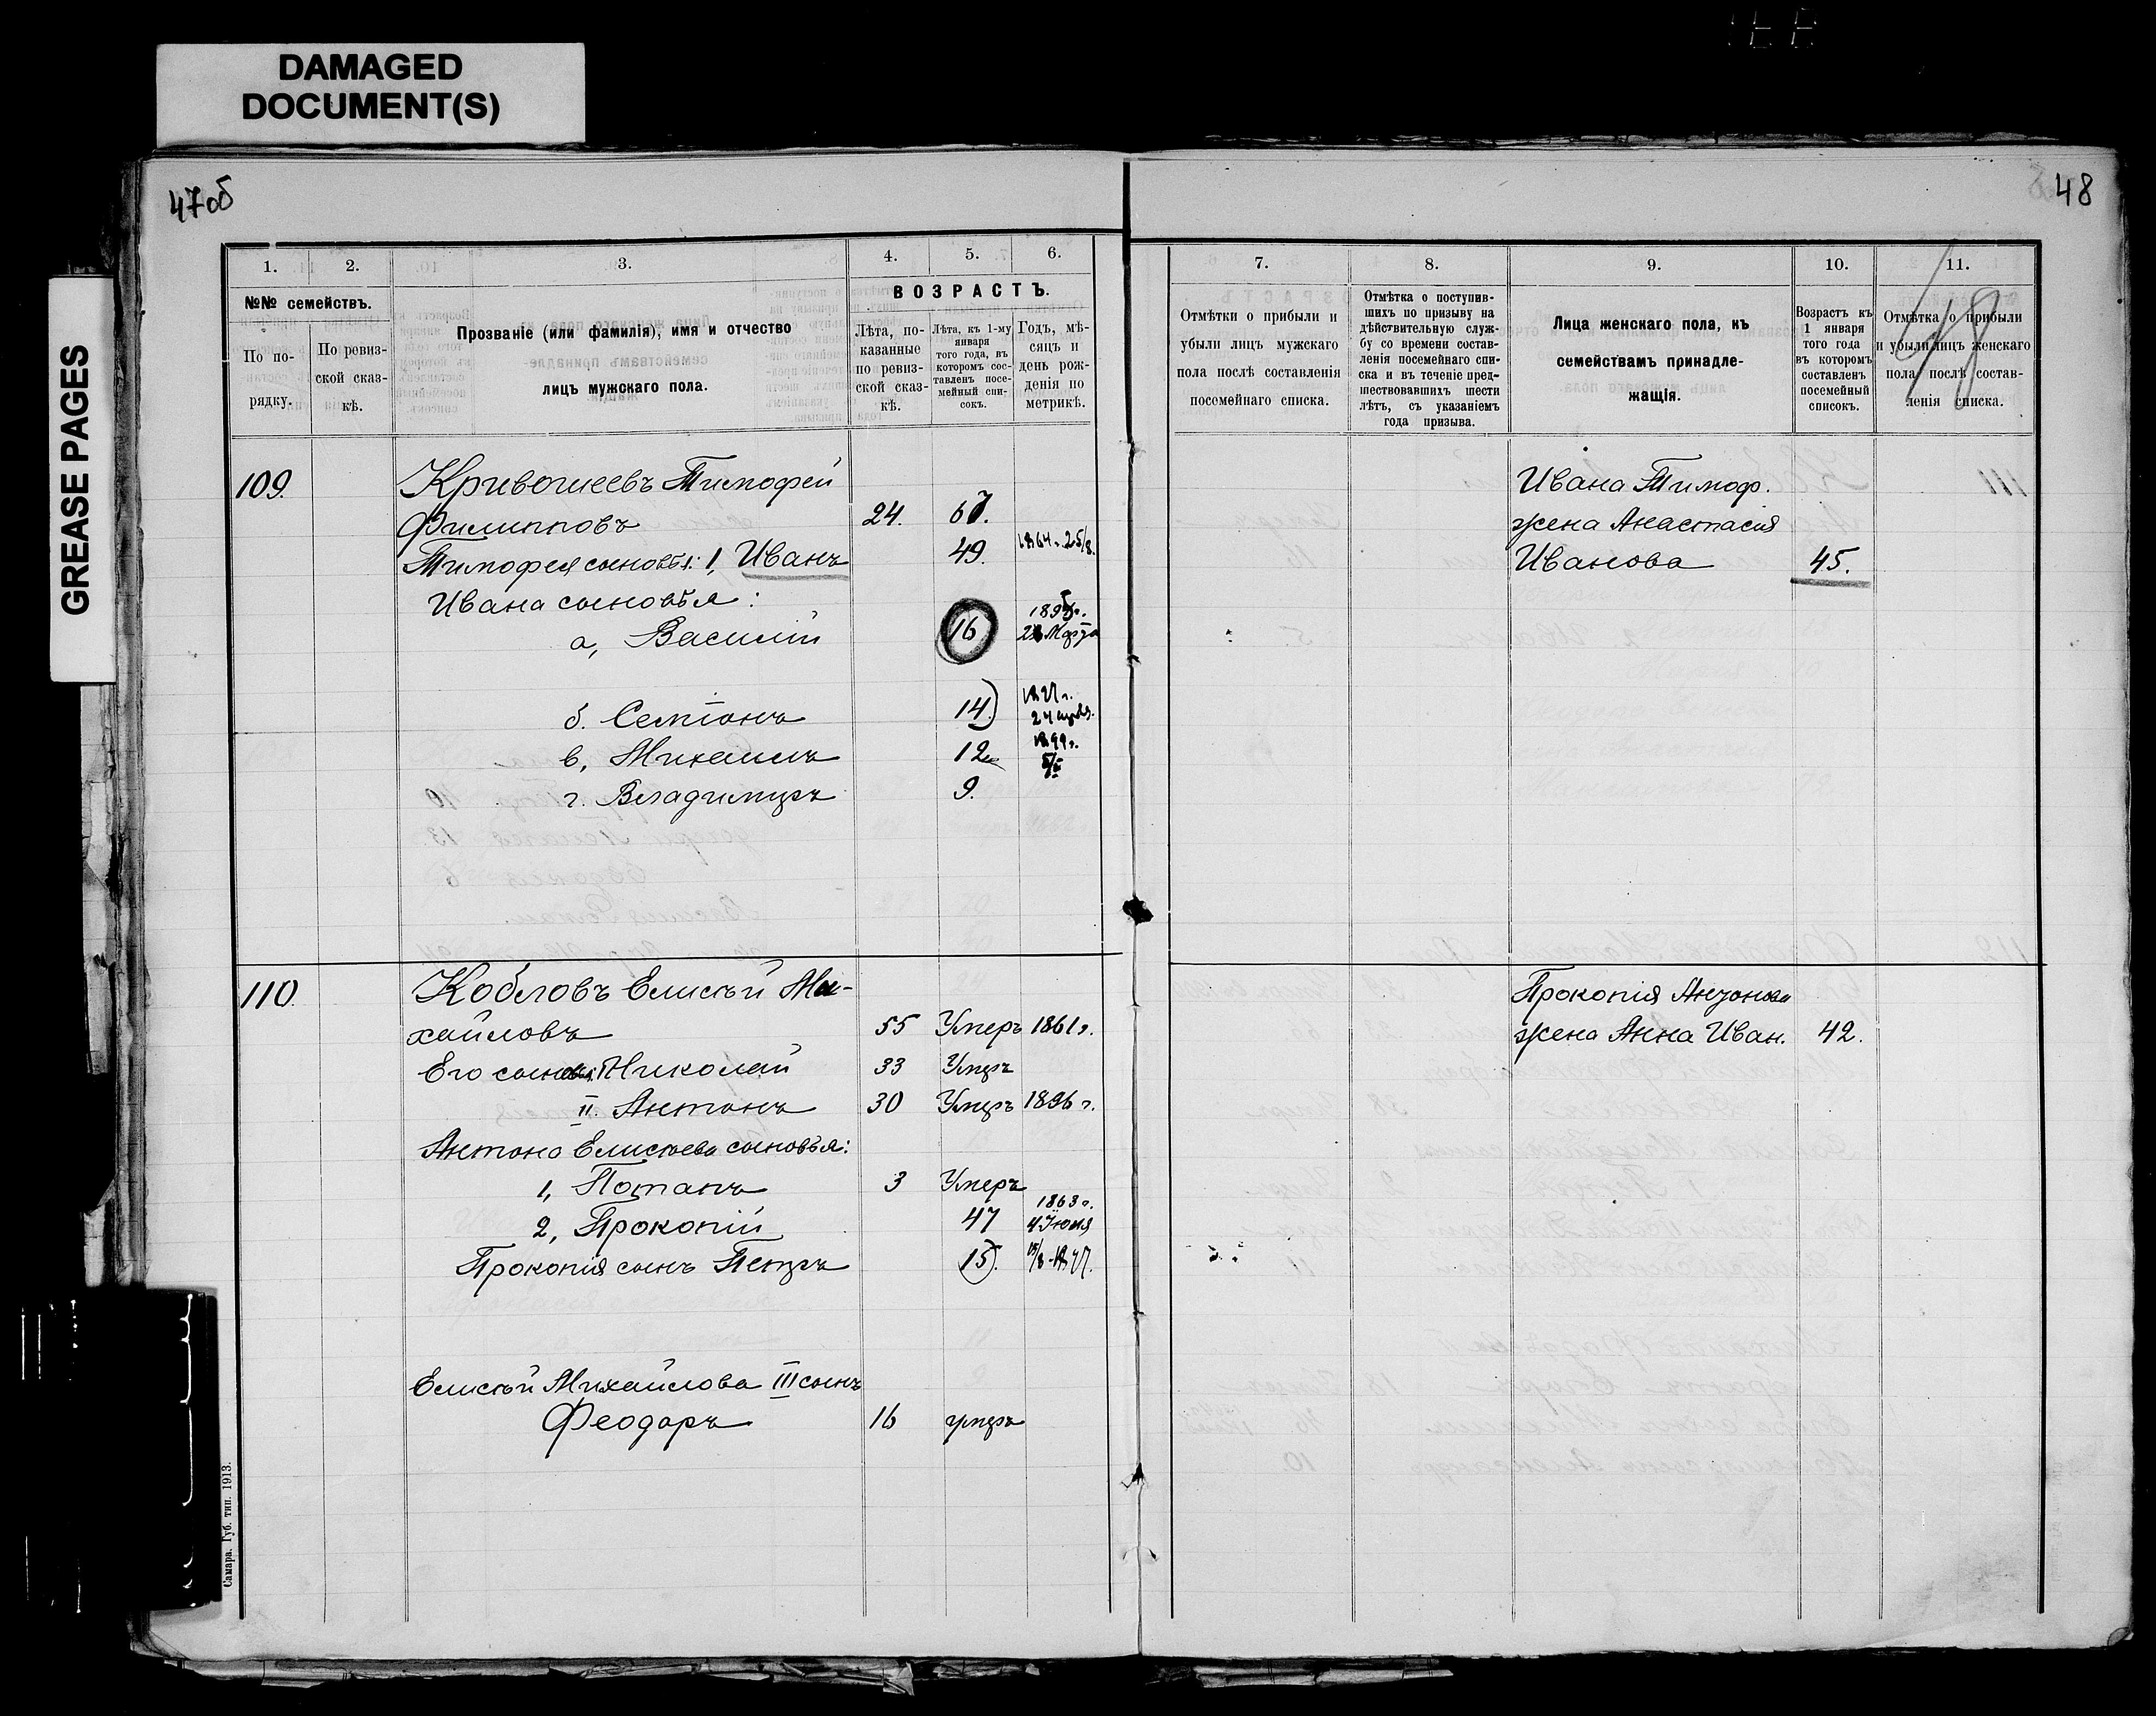 DAMAGED
DOCUMENT(S)
GREASE PAGES
47об
48
1. 2. 3. 4. 5. 6.
№№ семействъ.
По по-
рядку.
По ревиз-
ской сказ-
кѣ.
Прозваніе (или фамилія), имя и отчество
лицъ мужскаго пола.
ВОЗРАСТЪ.
Лѣта, по-
казанные
по ревиз-
ской сказ-
кѣ.
Лѣта, къ 1-му
января
того года, въ
которомъ сос-
тавленъ посе-
мейный спи-
сокъ.
Годъ, мѣ-
сяцъ и
день рож-
денія по
метрикѣ.
109. Кривошеевъ Тимофей
Филипповъ 24. 67.
Тимофея сыновья: 1, Иванъ 49. 1864 г. 25/8.
Ивана сыновья:
а, Василій 16 1895г.
Марта
б. Семіонъ 14.
24
в, Михаилъ 12 1899г.
г. Владимиръ 9.
110. Кобловъ Елисѣй Ми-
хайловъ 55 Умеръ 1861 г.
Его сыновья: I Николай 33 Умеръ
II. Антонъ 30 Умеръ 1896 г.
Антона Елисѣева сыновья:
1, Потапъ 3 Умеръ
2, Прокопій 47 1863 г.
4 Іюля
Прокопія сынъ Петръ 15.
Елисѣй Михайлова III сынъ
Феодоръ 16 умеръ
Самара. Губ. тип. 1913.
7. 8. 9. 10. 11.
Отмѣтки о прибыли и
убыли лицъ мужскаго
пола послѣ составленія
посемейнаго списка.
Отмѣтка о поступив-
шихъ по призыву на
дѣйствительную служ-
бу со времени состав-
ленія посемейнаго спи-
ска и въ теченіе пред-
шествовавшихъ шести
лѣтъ, съ указаніемъ
года призыва.
Лица женскаго пола, къ
семействамъ принадле-
жащія.
Возрастъ къ
1 января
того года
въ которомъ
составленъ
посемейный
списокъ.
Отмѣтка о прибыли
и убыли лицъ женскаго
пола послѣ состав-
ленія списка.
Ивана Тимоф.
жена Анастасія
Иванова 45.
Прокопія Антонова
жена Анна Иван. 42.